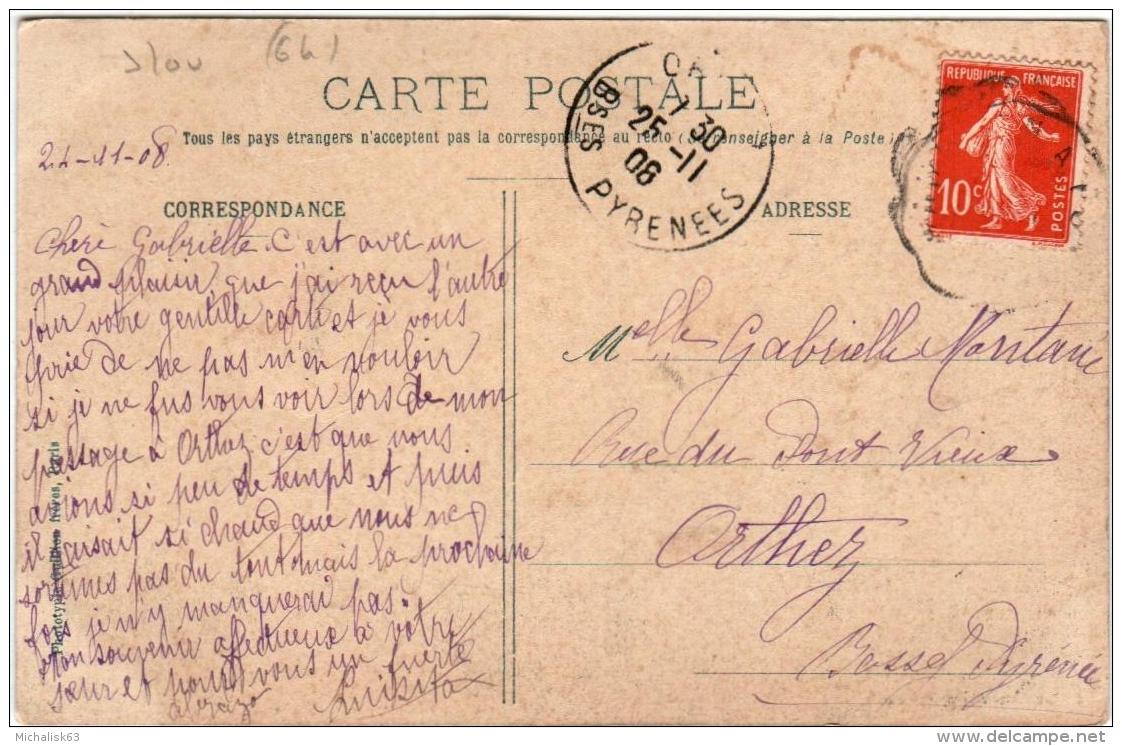 (64)
CARTE POSTALE
Tous les pays étrangers n'acceptent pas la correspondance au recto (Se renseigner à la Poste)
24-11-08
CORRESPONDANCE
Cheri Gabrielle. C'est avec un
grand plaisir que j'ai reçu l'autre
jour votre gentille carte et je vous
prie de ne pas m'en vouloir
si je ne fus vous voir lors de mon
passage à Orthez c'est que nous
avions si peu de temps et puis
il faisait si chaud que nous ne
sortimes pas du tout mais la prochaine
fois je n'y manquerai pas.
Mon souvenir affectueux à votre
sœur et pour vous un fuerte
abrazo Luisita
Phototypie frères, Paris
7 30
25-11
08
BSES PYRENEES
REPUBLIQUE FRANÇAISE
10c
POSTES
ADRESSE
Melle Gabrielle
Rue du Pont Vieux
Orthez
Basses Pyrenées
Michalisk63
www.delcampe.net